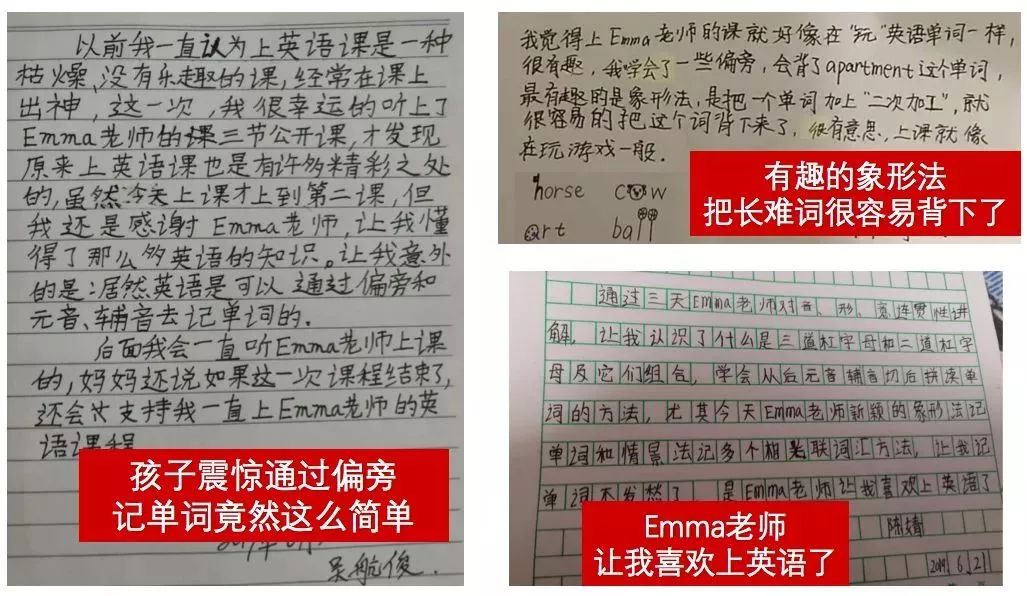 以前我一直认为上英语课是一种
枯燥、没有乐趣的课,经常在课上
出神,这一次,我很幸运的听上了
Emma老师的课三节公开课,才发现
原来上英语课也是有许多精彩之处
的,虽然今天上课才上到第二课,但
我还是感谢Emma老师,让我懂
得了那么多英语的知识。让我意外
的是:居然英语是可以通过偏旁和
元音、辅音去记单词的.
后面我会一直听Emma老师上课
的,妈妈还说如果这一次课程结束了,
还会支持我一直上Emma老师的英
语课程
孩子震惊通过偏旁
记单词竟然这么简单
吴航俊.
我觉得上Emma老师的课就好像在“玩”英语单词一样,
很有趣,我学会了一些偏旁,会背了apartment这个单词,
最有趣的是象形法,是把一个单词加上“二次加工”,就
很容易的把这个词背下来了,很有意思,上课就像
在玩游戏一般.
horse cow
art ball
有趣的象形法
把长难词很容易背下了
通过三天Emma老师对音、形、意连贯性讲
解,让我认识了什么是三道杠字母和二道杠字
母及它们组合,学会从后元音辅音切后拼读单
词的方法,尤其今天Emma老师新颖的象形法记
单词和情景法记多个相关联词汇方法,让我记
单词不发愁了,是Emma老师让我喜欢上英语了
陈婧
2019.6.21
Emma老师
让我喜欢上英语了